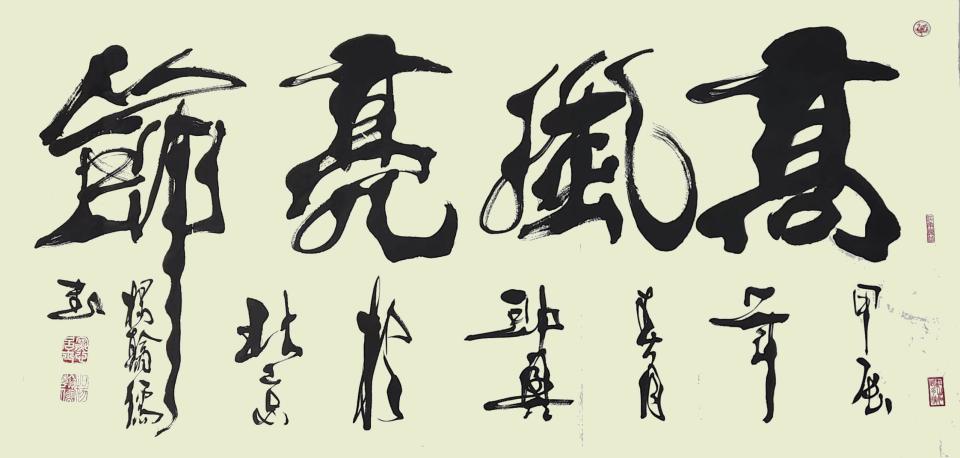 高風亮節
甲辰
年
春月
於
北京
楊翰儒
書